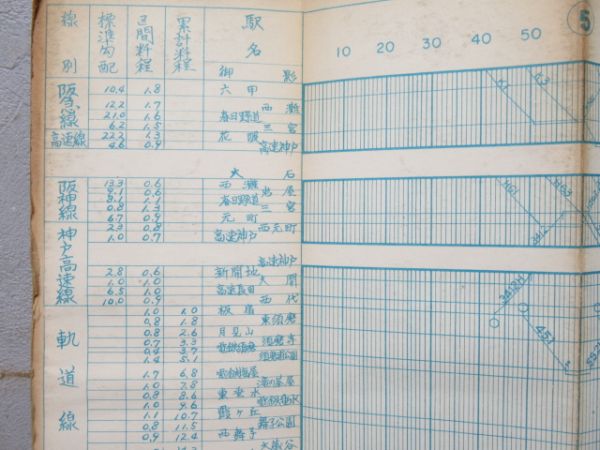 線別 標準勾配 区間粁程 累計粁程 駅名 10 20 30 40 50 5
御影
阪急線 10.4 1.8 六甲
12.2 1.7 西灘
21.0 1.6 春日野道
6.2 1.5 三宮
高速線 22.2 1.3 花隈
4.6 0.9 高速神戸
大石
阪神線 13.3 0.6 西灘
9.1 0.6 岩屋
8.1 1.1 春日野道
0.8 1.3 三宮
6.7 0.9 元町
神戸高速線 2.3 0.8 西元町
1.0 0.7 高速神戸
高速神戸
2.8 0.6 新開地
1.0 1.0 大開
6.5 1.0 高速長田
10.0 0.9 西代
軌道線 1.0 1.0 板宿
0.8 1.8 東須磨
0.8 2.6 月見山
0.7 3.3 須磨寺
0.4 3.7 電鉄須磨
1.4 5.1 須磨浦公園
1.7 6.8 電鉄塩屋
1.0 7.8 滝の茶屋
0.8 8.6 東垂水
1.0 9.6 電鉄垂水
1.1 10.7 霞ヶ丘
0.8 11.5 舞子公園
0.9 12.4 西舞子
大蔵谷
3412H
451